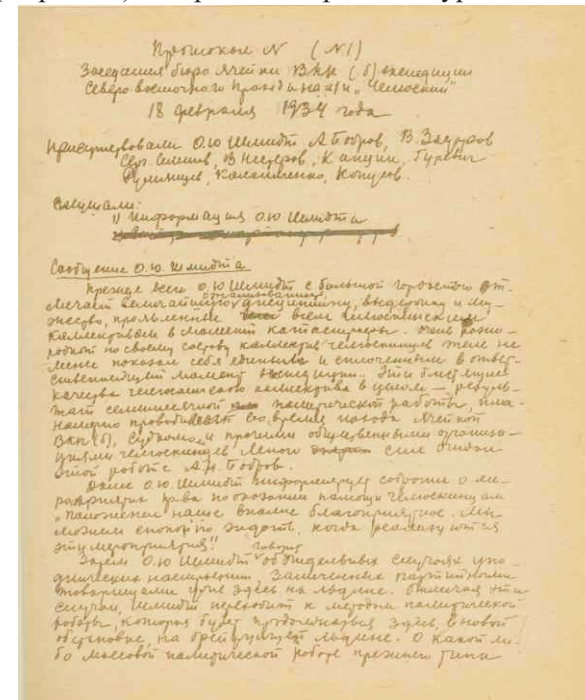 Протокол № (№1)
Заседания бюро ячейки ВКП(б) экспедиции
Северо-восточного прохода на л/п „Челюскин"
18 февраля 1934 года
Присутствовали О.Ю Шмидт А Бобров, В. Задоров
Сем. Семенов, В Нестеров, Канцин, Гуревич
Румянцев, Колесниченко, Копусов.
Слушали:
1) Информация О.Ю Шмидта
Сообщение О.Ю. Шмидта
Прежде всего О.Ю Шмидт с большой гордостью от-
мечает величайшую организованность дисциплину, выдержку и му-
жество, проявленные всем челюскинским
коллективом в момент катастрофы. Очень разно-
родный по своему составу коллектив челюскинцев тем не
менее показал себя единым и сплоченным в ответ-
ственнейший момент экспедиции. Эти блестящие
качества челюскинского коллектива в целом – резуль-
тат семимесячной политической работы, пла-
номерно проводившейся во время похода ячейкой
ВКП(б), судкомом и прочими общественными организа-
циями челюскинцев. Много сил отдал
этой работе А.Н. Бобров.
Далее О.Ю Шмидт информирует собрание о ме-
роприятиях пр-ва по оказанию помощи челюскинцам
„Положение наше вполне благоприятное. Мы
можем спокойно ждать, когда реализуются
эти мероприятия."
Затем О.Ю Шмидт говорит об отдельных случаях упа-
днических настроений, замеченных партийными
товарищами уже здесь на льдине. Отмечая эти
случаи, Шмидт переходит к методам политической
работы, которая будет продолжаться здесь, в новой
обстановке, на дрейфующей льдине. О какой ли-
бо массовой политической работе прежнего типа